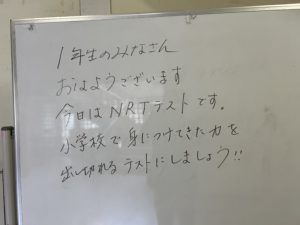 1年生のみなさん
おはようございます
今日はNRTテストです。
小学校で身につけてきた力を
出し切れるテストにしましょう!!